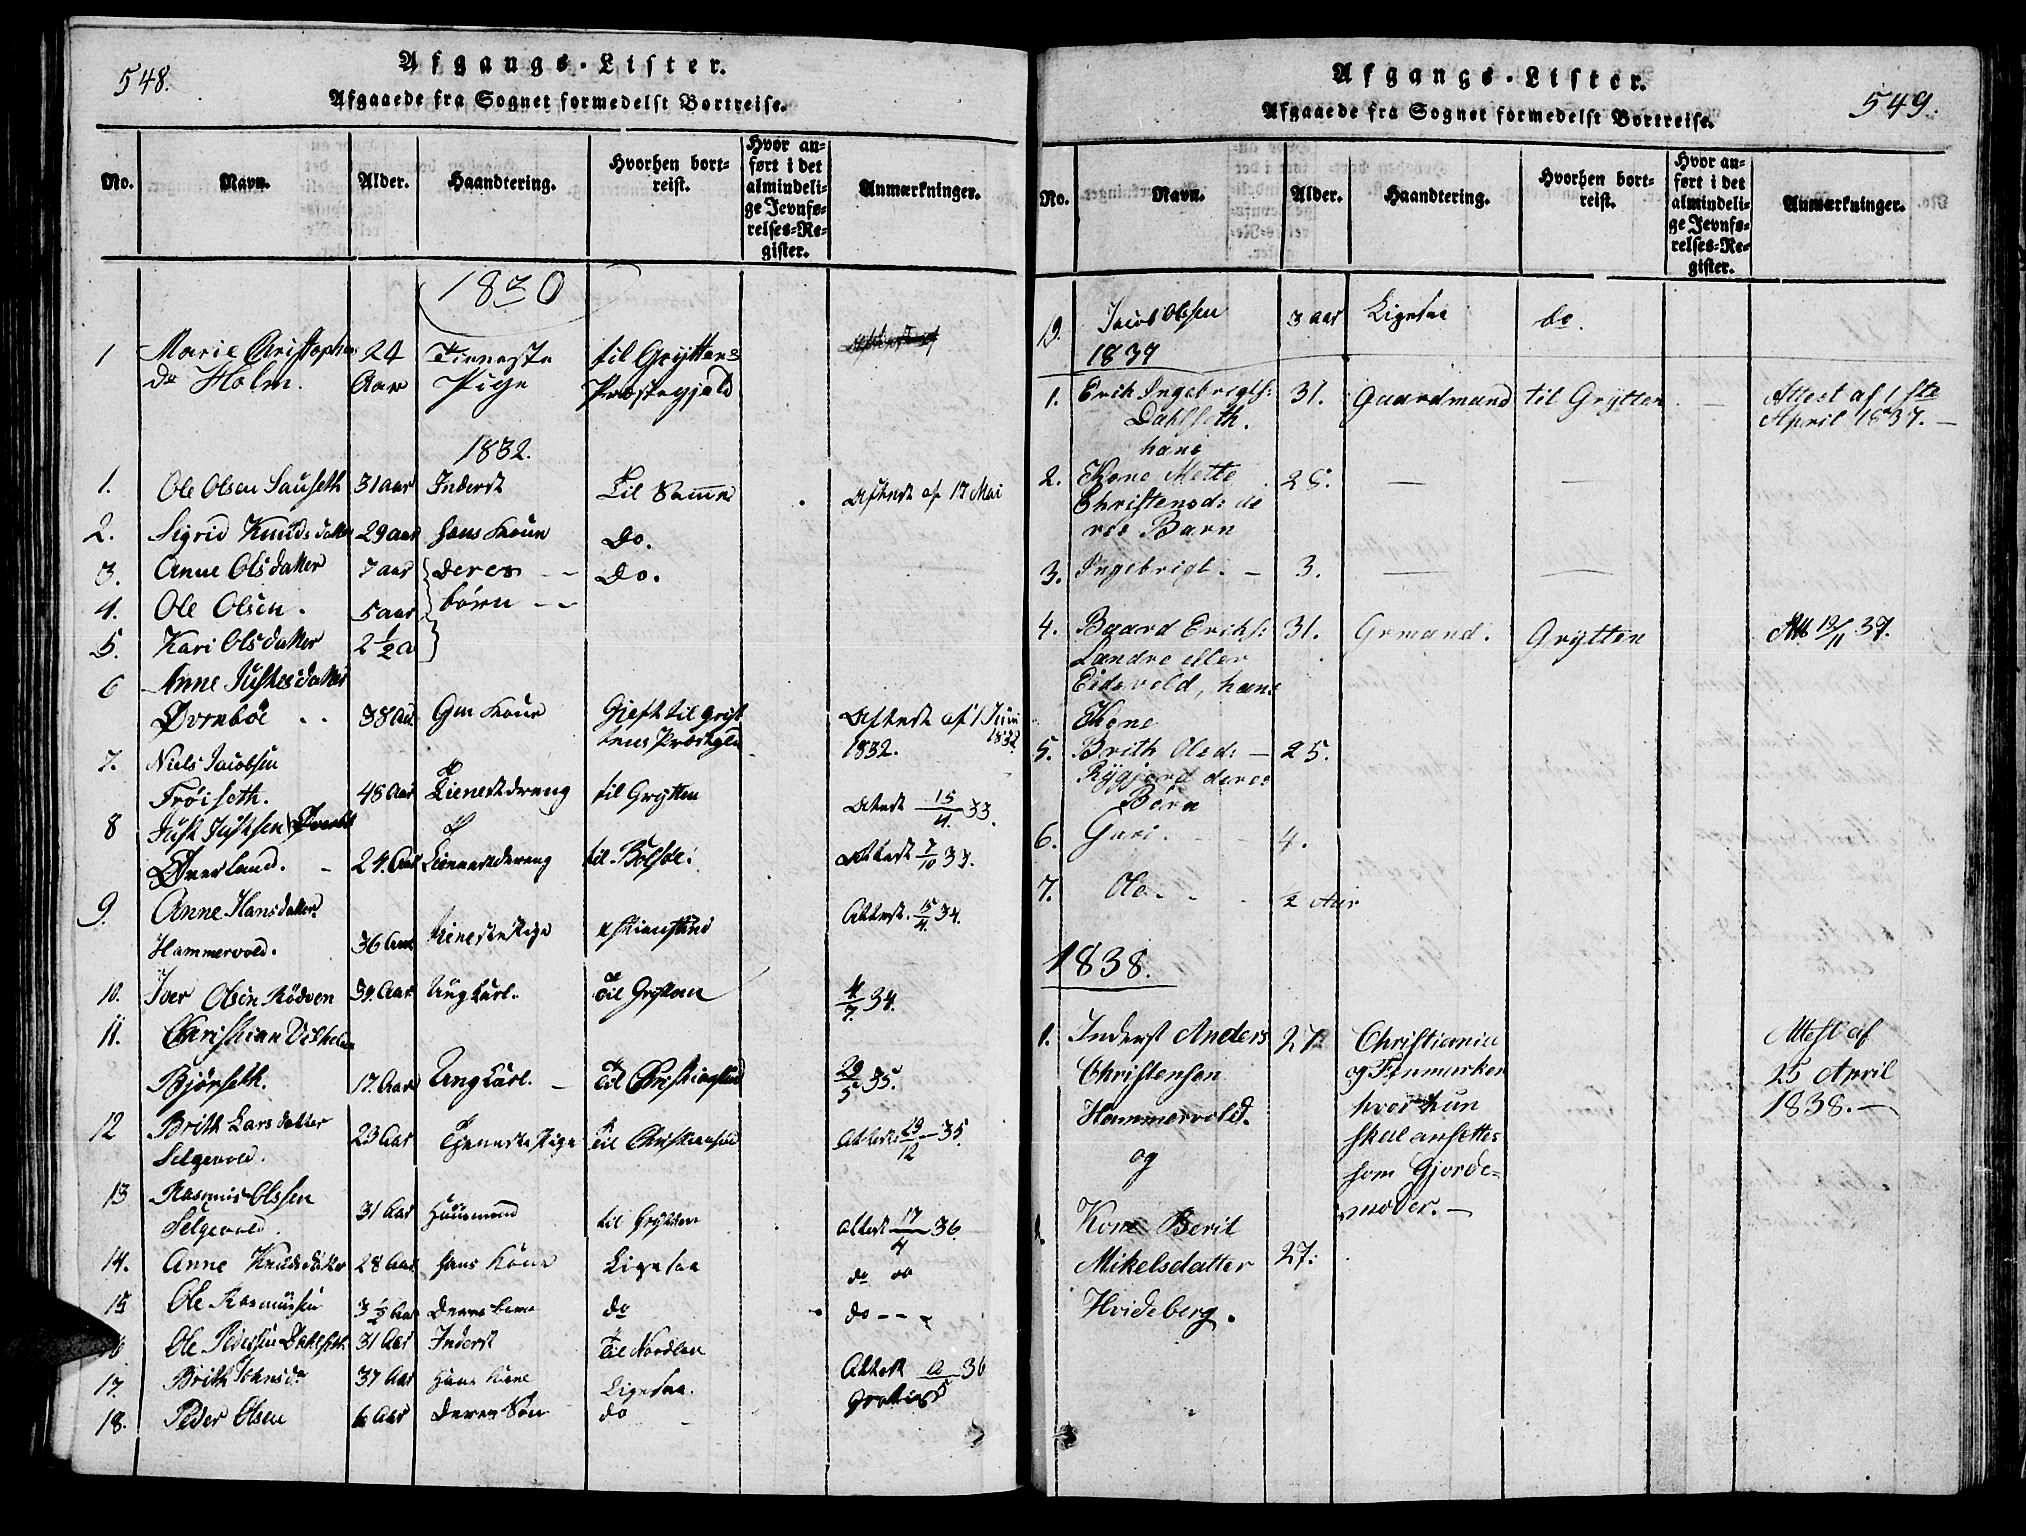 548.
Afgangs-Lister.
Afgaaede fra Sognet formedelst Bortreise.
No. Navn. Alder. Haandtering. Hvorhen bortreist. Hvor anført i det almindelige Jevnførelses-Register. Anmærkninger.
1820
1 Marie Christophers 24 Tieneste til Gryttens
Dr Holm. Aar Pige Præstegjæld
1832.
1. Ole Olsen Sauseth 31 aar Inderst Til Attest af 17 Mai
2. Sigrid Knudsdatter 29 aar hans Koune Do.
3. Anne Olsdatter 7 aar deres - - Do.
4. Ole Olsen. 5 aar børn - -
5. Kari Olsdatter 2 1/2 a
6 Anne Justesdatter
Øvrebøe .. 38 Aar Gm Koune Gieft til Gryttens Attest af 1 Juni
1832. 1832
7. Niels Jacobsen
Trøiseth. 48 Aar Tienestdreng til Grytten Attest 15/4. 33.
8 Just Justsen
Øverland. - 24. Aar Tienestdreng til Bolsøe. Attest 7/10 33.
9. Anne Hansdatter
Hammervold. 36 Aar tienestePige Christiansund Attest. 15/4. 34.
10. Iver Olsen Rødven 39. Aar Ungkarl. Til Grytten 4/7. 34.
11. Christian Vilhelm
Bjørseth. 17. Aar Ungkarl. - Til Christiansund 29/5 35.
12 Brith Larsdatter 23 Aar TjenestePige Til Christiansund Attest 29/12 35.
Selgevold.
13 Rasmus Olssen
Selgevold. 31 Aar Huusmand til Grytten Attest 17/4 36.
14. Anne Knudsdatter 28 Aar hans Kone Ligesaa do do
15 Ole Rasmussen 3 1/2 Aar Deres Barn do do - - -
16 Ole Pedersen Dahlseth 31 Aar Inderst Til Nordlan
17. Brith Johnsdr 37 Aar Hans Kone Ligesaa. Attest 36
18. Peder Olsen 6 Aar Deres Søn do - Gratis
549.
Afgangs-Lister.
Afgaaede fra Sognet formedelst Bortreise.
No. Navn. Alder. Haandtering. Hvorhen bortreist. Hvor anført i det almindelige Jevnførelses-Register. Anmærkninger.
19. Jacob Olssen 3 aar Ligesaa do.
1837
1. Erik Ingebrigts: 31. Gaardmand til Grytten - Attest af 1ste
Dahlseth. April 1837. -
hans
2. Kone Mette 28. - -
Christensd: de
res Barn
3. Ingebrigt. - 3. - -
4. Baard Eriks: 31. Grmand. Grytten Att. 12/11 37.
Landre eller
Eidsvold, hans
Kone
5. Brith Olsd: - 25.
Rygjord deres
Børn
6. Guri. - - 4.
7. Ole. - - 2 Aar
1838.
1. Inderst Anders 27 Christiania Attest af
Christensen og Finmarken 25 April
Hammervold. hvor hun 1838. -
og skal ansettes
som Gjorde-
moder. -
1. Kone Berit
Mikelsdatter 27:
Hvideberg.